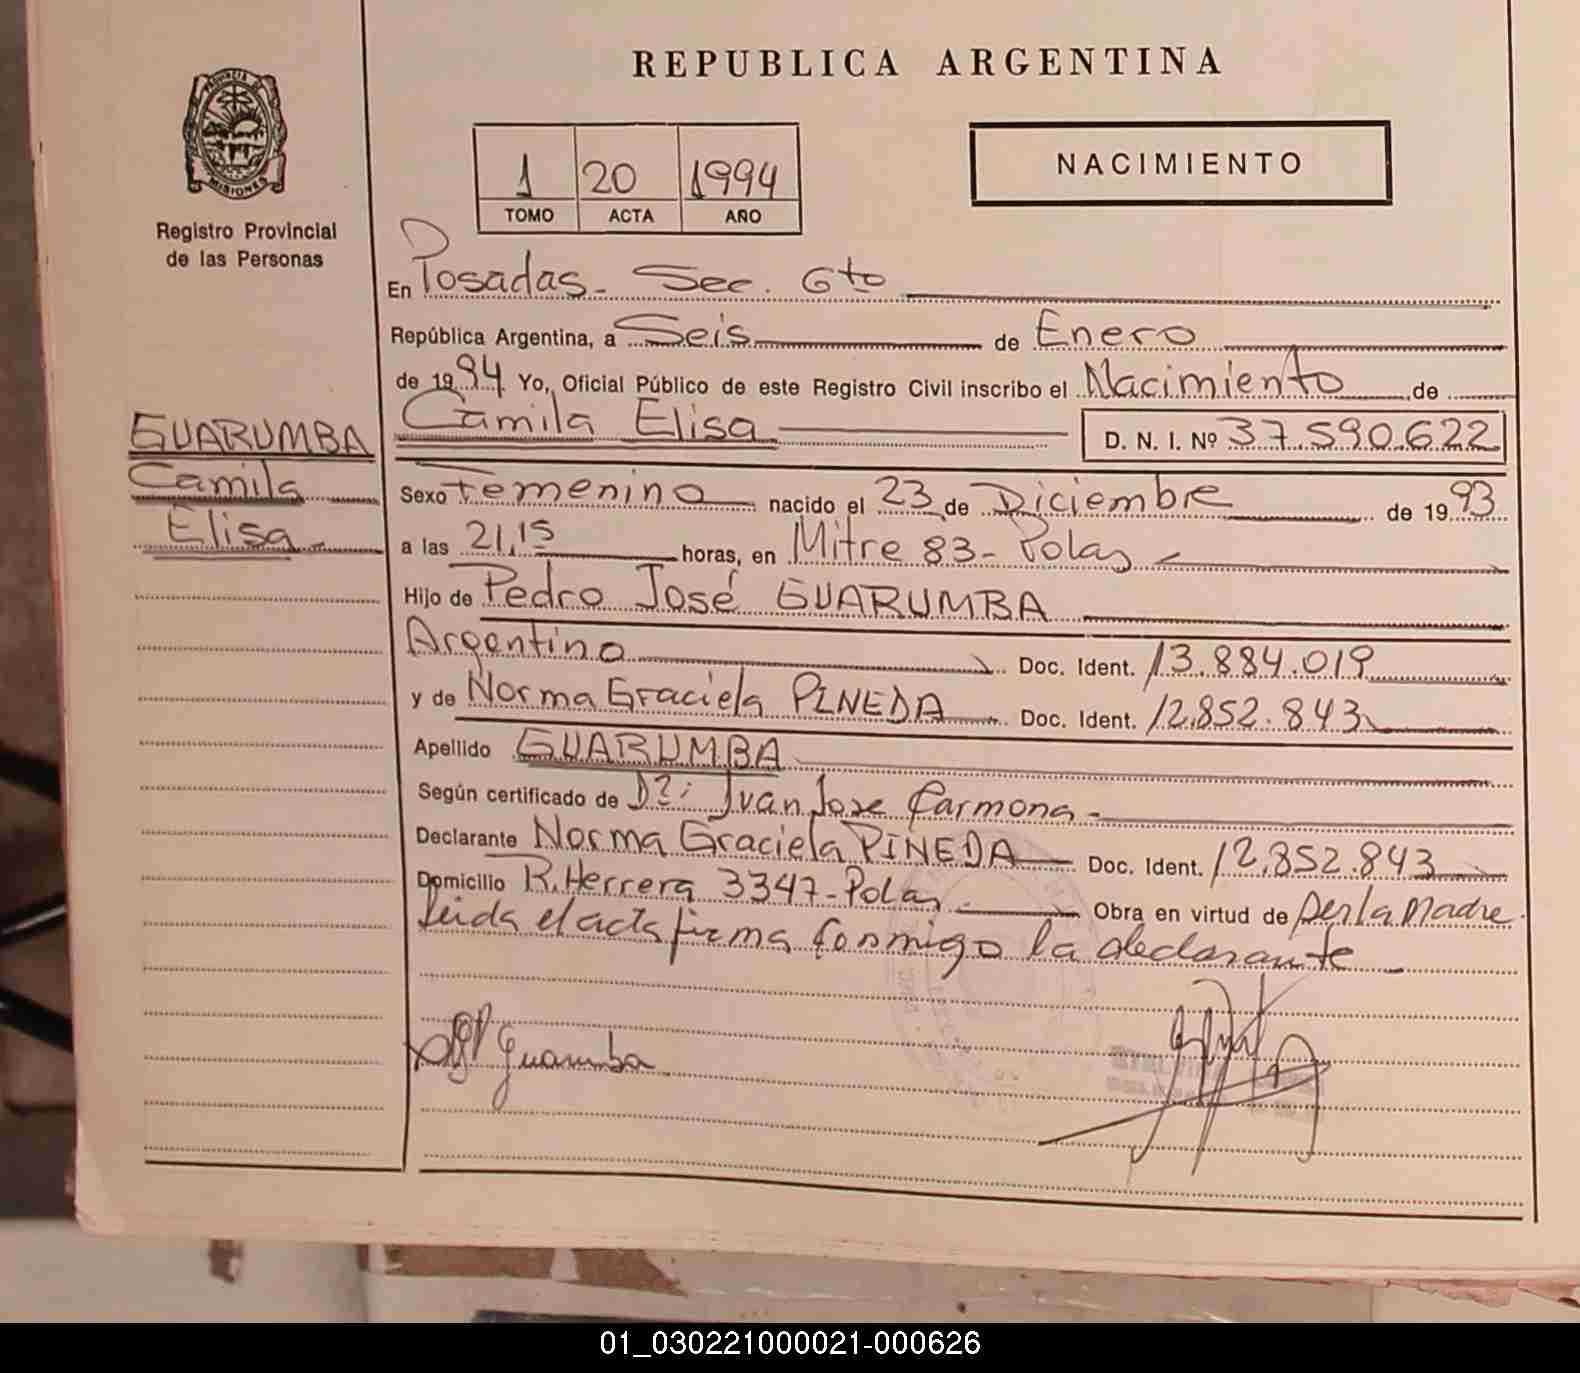 REPUBLICA ARGENTINA
PROVINCIA DE MISIONES
Registro Provincial
de las Personas
1 20 1994
TOMO ACTA AÑO
NACIMIENTO
En Posadas - Sec. 6to
República Argentina, a Seis de Enero
de 1994 Yo, Oficial Público de este Registro Civil inscribo el Nacimiento de
GUARUMBA
Camila
Elisa
Camila Elisa D. N. I. Nº 37.590.622
Sexo Femenino nacido el 23 de Diciembre de 1993
a las 21,15 horas, en Mitre 83 - Pdas
Hijo de Pedro José GUARUMBA
Argentino Doc. Ident. 13.884.019
y de Norma Graciela PINEDA Doc. Ident. 12.852.843
Apellido GUARUMBA
Según certificado de Dr: Juan Jose Carmona -
Declarante Norma Graciela PINEDA Doc. Ident. 12.852.843
Domicilio R. Herrera 3347 - Pdas Obra en virtud de ser la Madre.
Leida el acta firma conmigo la declarante -
Guarumba
01_030221000021-000626